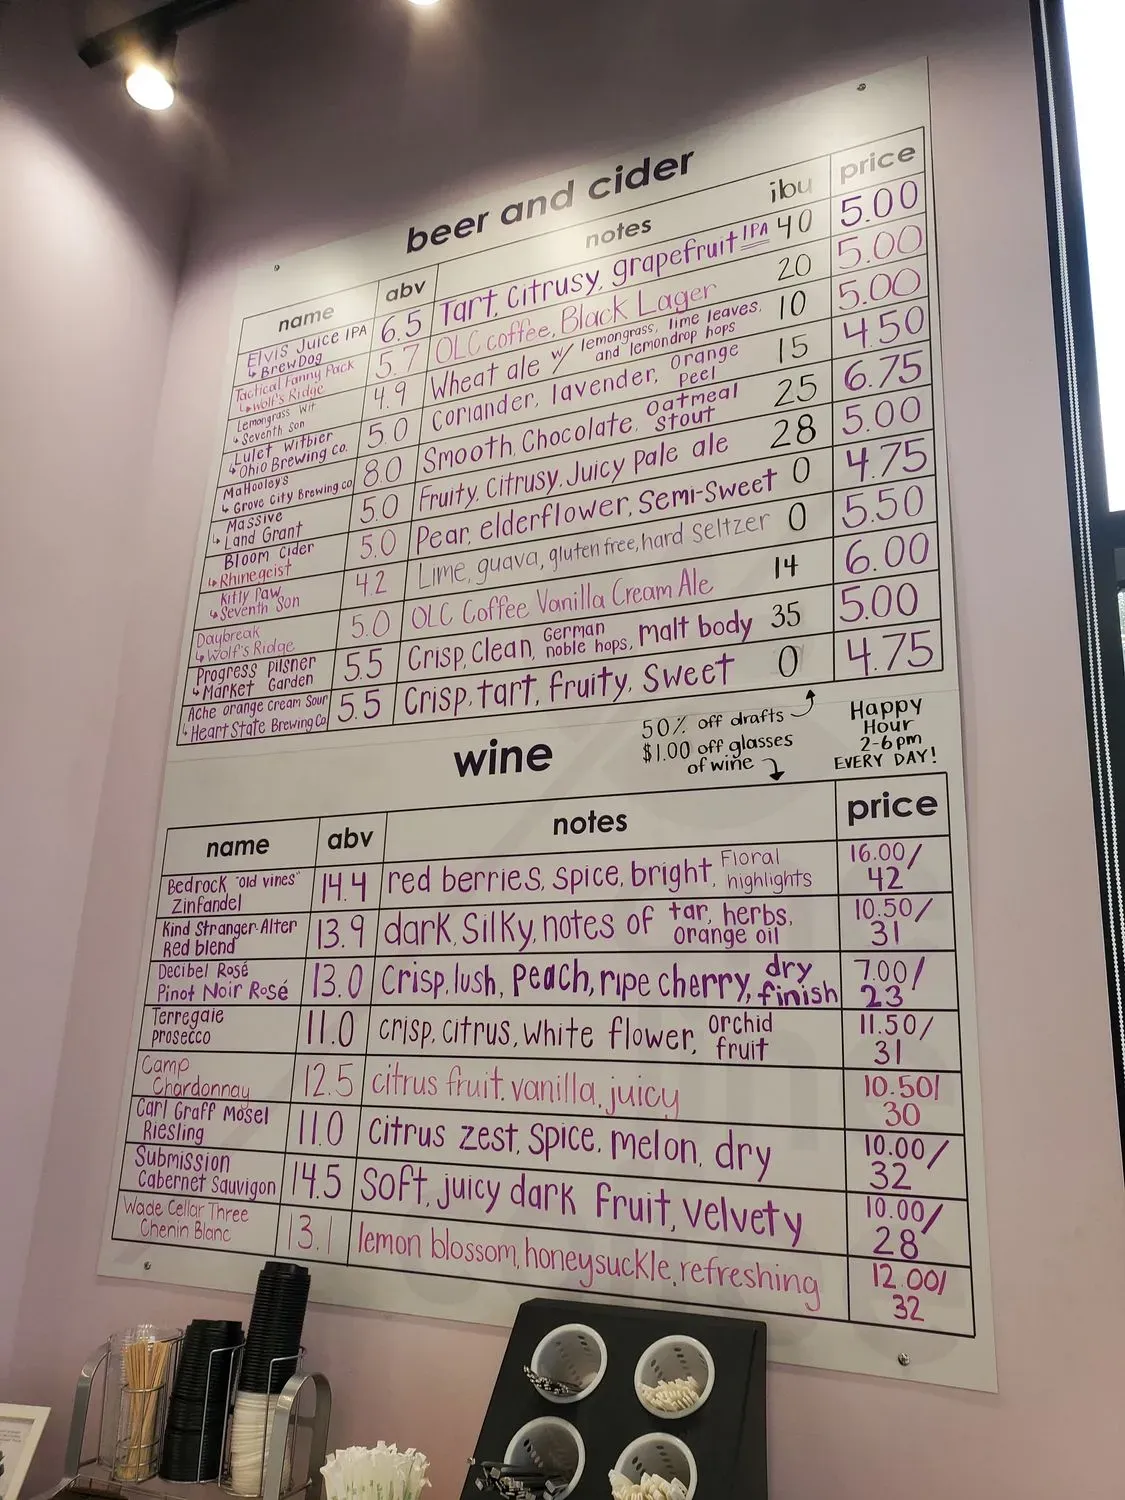 beer and cider
name abv notes ibu price
Elvis Juice IPA 6.5 Tart, Citrusy, grapefruit IPA 40 5.00
↳ BrewDog
Tactical Fanny Pack 5.7 OLC coffee, Black Lager 20 5.00
↳ Wolf's Ridge
Lemongrass Wit 4.9 Wheat ale w/ lemongrass, lime leaves, 10 5.00
↳ Seventh Son and lemondrop hops
Lulet Witbier 5.0 Coriander, lavender, orange 15 4.50
↳ Ohio Brewing Co. Peel
MaHooley's 8.0 Smooth, Chocolate, Oatmeal 25 6.75
↳ Grove City Brewing co Stout
Massive 5.0 Fruity, Citrusy, Juicy Pale ale 28 5.00
↳ Land Grant
Bloom Cider 5.0 Pear, elderflower, Semi-Sweet 0 4.75
↳ Rhinegeist
Kitty Paw 4.2 Lime, guava, gluten free, hard Seltzer 0 5.50
↳ Seventh Son
Daybreak 5.0 OLC Coffee Vanilla Cream Ale 14 6.00
↳ Wolf's Ridge
Progress Pilsner 5.5 Crisp, Clean, German noble hops, malt body 35 5.00
↳ Market Garden
Ache orange Cream Sour 5.5 Crisp, tart, fruity, Sweet 0 4.75
↳ Heart State Brewing Co
50% off drafts
$1.00 off glasses
of wine
Happy
Hour
2-6pm
EVERY DAY!
wine
name abv notes price
Bedrock "old vines" 14.4 red berries, spice, bright, Floral 16.00/
Zinfandel highlights 42
Kind Stranger-Alter 13.9 dark, Silky, notes of tar, herbs, 10.50/
Red blend orange oil 31
Decibel Rosé 13.0 Crisp, lush, Peach, ripe cherry, dry 7.00/
Pinot Noir Rosé finish 23
Terregaie 11.0 crisp, citrus, white flower, orchid 11.50/
Prosecco fruit 31
Camp 12.5 citrus fruit, vanilla, juicy 10.50/
Chardonnay 30
Carl Graff Mosel 11.0 citrus zest, spice, melon, dry 10.00/
Riesling 32
Submission 14.5 Soft, juicy dark fruit, velvety 10.00/
Cabernet Sauvigon 28
Wade Cellar Three 13.1 lemon blossom, honeysuckle, refreshing 12.00/
Chenin Blanc 32